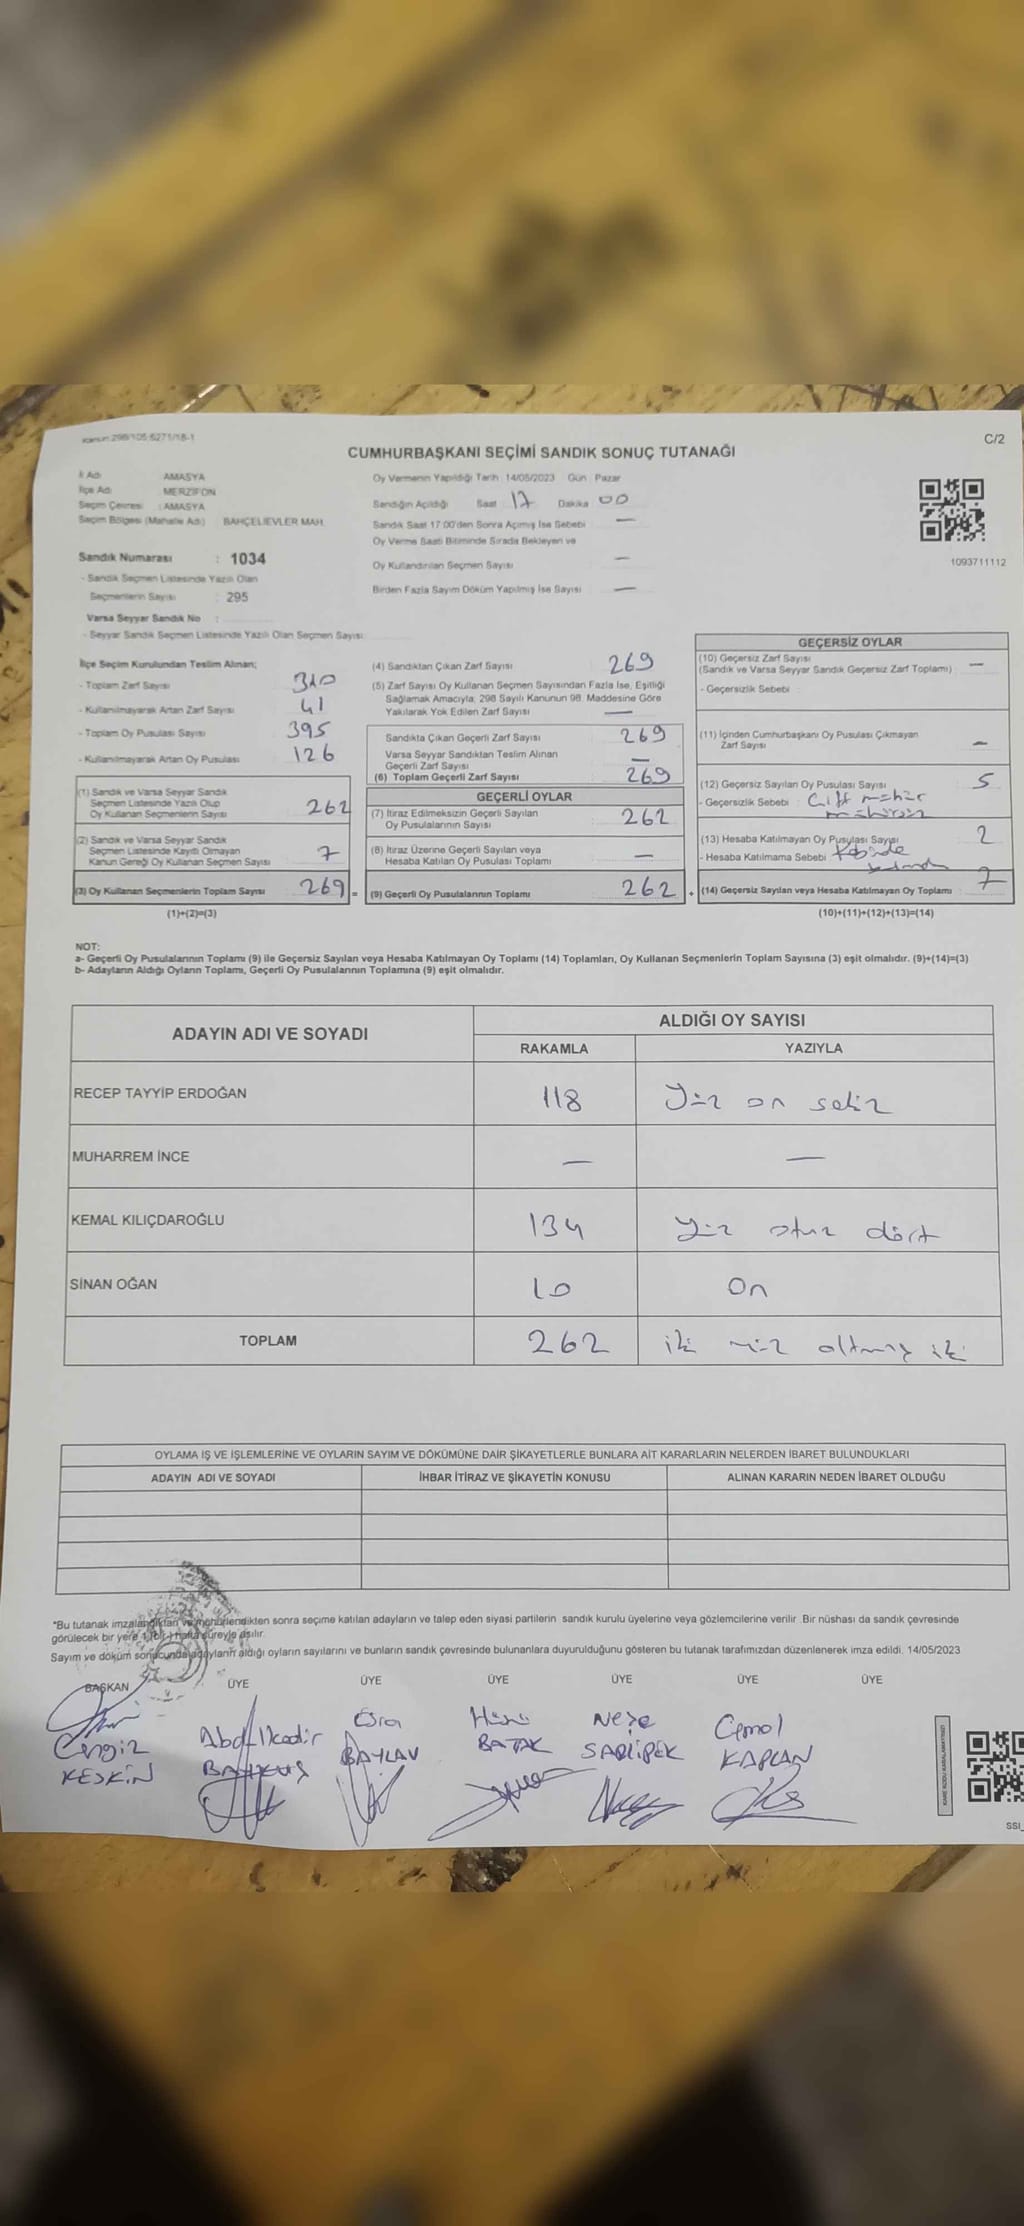 Kanun:298/105;6271/18-1
C/2
CUMHURBAŞKANI SEÇİMİ SANDIK SONUÇ TUTANAĞI
İl Adı : AMASYA
İlçe Adı : MERZİFON
Seçim Çevresi : AMASYA
Seçim Bölgesi (Mahalle Adı) : BAHÇELİEVLER MAH.
Sandık Numarası : 1034
- Sandık Seçmen Listesinde Yazılı Olan
Seçmenlerin Sayısı : 295
Varsa Seyyar Sandık No :
- Seyyar Sandık Seçmen Listesinde Yazılı Olan Seçmen Sayısı:
Oy Vermenin Yapıldığı Tarih : 14/05/2023 Gün : Pazar
Sandığın Açıldığı Saat 17 Dakika 00
Sandık Saat 17:00'den Sonra Açımış İse Sebebi —
Oy Verme Saati Bitiminde Sırada Bekleyen ve
Oy Kullandırılan Seçmen Sayısı —
Birden Fazla Sayım Döküm Yapılmış İse Sayısı —
1093711112
İlçe Seçim Kurulundan Teslim Alınan;
- Toplam Zarf Sayısı 310
- Kullanılmayarak Artan Zarf Sayısı 41
- Toplam Oy Pusulası Sayısı 395
- Kullanılmayarak Artan Oy Pusulası 126
(1) Sandık ve Varsa Seyyar Sandık
Seçmen Listesinde Yazılı Olup
Oy Kullanan Seçmenlerin Sayısı 262
(2) Sandık ve Varsa Seyyar Sandık
Seçmen Listesinde Kayıtlı Olmayan
Kanun Gereği Oy Kullanan Seçmen Sayısı 7
(3) Oy Kullanan Seçmenlerin Toplam Sayısı 269 =
(1)+(2)=(3)
(4) Sandıktan Çıkan Zarf Sayısı 269
(5) Zarf Sayısı Oy Kullanan Seçmen Sayısından Fazla İse, Eşitliği
Sağlamak Amacıyla, 298 Sayılı Kanunun 98. Maddesine Göre
Yakılarak Yok Edilen Zarf Sayısı —
Sandıkta Çıkan Geçerli Zarf Sayısı 269
Varsa Seyyar Sandıktan Teslim Alınan
Geçerli Zarf Sayısı —
(6) Toplam Geçerli Zarf Sayısı 269
GEÇERLİ OYLAR
(7) İtiraz Edilmeksizin Geçerli Sayılan
Oy Pusulalarının Sayısı 262
(8) İtiraz Üzerine Geçerli Sayılan veya
Hesaba Katılan Oy Pusulası Toplamı —
(9) Geçerli Oy Pusulalarının Toplamı 262 +
GEÇERSİZ OYLAR
(10) Geçersiz Zarf Sayısı
(Sandık ve Varsa Seyyar Sandık Geçersiz Zarf Toplamı) —
- Geçersizlik Sebebi :
(11) İçinden Cumhurbaşkanı Oy Pusulası Çıkmayan
Zarf Sayısı —
(12) Geçersiz Sayılan Oy Pusulası Sayısı 5
- Geçersizlik Sebebi : Çift mühür
(13) Hesaba Katılmayan Oy Pusulası Sayısı 2
- Hesaba Katılmama Sebebi
(14) Geçersiz Sayılan veya Hesaba Katılmayan Oy Toplamı 7
(10)+(11)+(12)+(13)=(14)
NOT:
a- Geçerli Oy Pusulalarının Toplamı (9) ile Geçersiz Sayılan veya Hesaba Katılmayan Oy Toplamı (14) Toplamları, Oy Kullanan Seçmenlerin Toplam Sayısına (3) eşit olmalıdır. (9)+(14)=(3)
b- Adayların Aldığı Oyların Toplamı, Geçerli Oy Pusulalarının Toplamına (9) eşit olmalıdır.
ADAYIN ADI VE SOYADI
ALDIĞI OY SAYISI
RAKAMLA YAZIYLA
RECEP TAYYİP ERDOĞAN 118 Yüz on sekiz
MUHARREM İNCE — —
KEMAL KILIÇDAROĞLU 134 Yüz otuz dört
SİNAN OĞAN 10 On
TOPLAM 262 iki yüz altmış iki
OYLAMA İŞ VE İŞLEMLERİNE VE OYLARIN SAYIM VE DÖKÜMÜNE DAİR ŞİKAYETLERLE BUNLARA AİT KARARLARIN NELERDEN İBARET BULUNDUKLARI
ADAYIN ADI VE SOYADI İHBAR İTİRAZ VE ŞİKAYETİN KONUSU ALINAN KARARIN NEDEN İBARET OLDUĞU
*Bu tutanak imzalandıktan ve mühürlendikten sonra seçime katılan adayların ve talep eden siyasi partilerin sandık kurulu üyelerine veya gözlemcilerine verilir. Bir nüshası da sandık çevresinde
görülecek bir yere 1 (bir) hafta süreyle asılır.
Sayım ve döküm sonucunda adayların aldığı oyların sayılarını ve bunların sandık çevresinde bulunanlara duyurulduğunu gösteren bu tutanak tarafımızdan düzenlenerek imza edildi. 14/05/2023
BAŞKAN ÜYE ÜYE ÜYE ÜYE ÜYE ÜYE
Cengiz Abdulkadir Esra Neşe Cemal
KESKİN BAYLAV BATAK KAPLAN
KARE KODU KARALAMAYINIZ!
SSI_